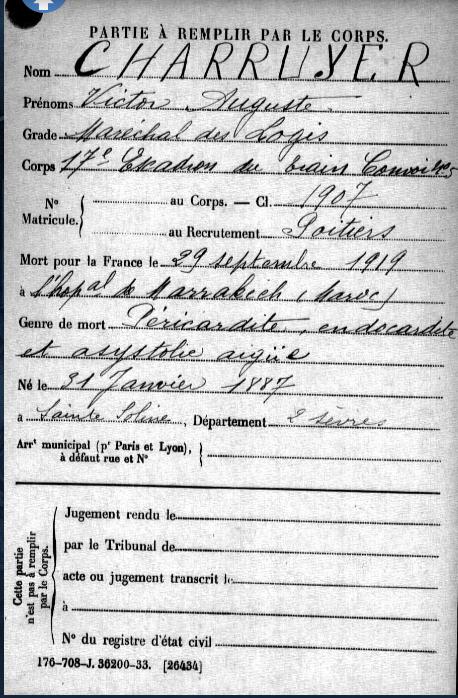 PARTIE À REMPLIR PAR LE CORPS.
Nom CHARRUYER
Prénoms Victor Auguste
Grade Maréchal des Logis
Corps 17e Escadron du train Convoi n°5
N° Matricule. { au Corps. — Cl. 1907
au Recrutement Poitiers
Mort pour la France le 29 septembre 1919
à l'hopal de Marrakech (Maroc)
Genre de mort Péricardite, endocardite
et asystolie aigüe
Né le 31 Janvier 1887
à Sainte Soline, Département 2 sèvres
Arrt municipal (pr Paris et Lyon),
à défaut rue et N°
Cette partie n'est pas à remplir par le Corps.
Jugement rendu le
par le Tribunal de
acte ou jugement transcrit le
à
N° du registre d'état civil
176-708-J. 36200-33. [26434]